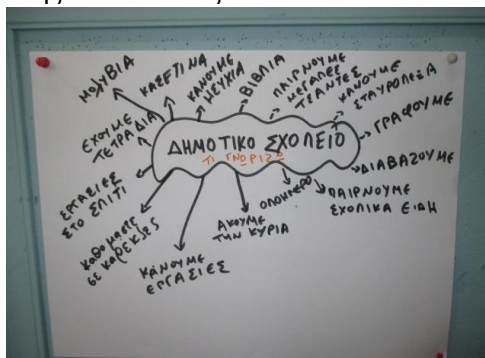 ΔΗΜΟΤΙΚΟ ΣΧΟΛΕΙΟ
ΤΙ ΓΝΩΡΙΖΩ
ΜΟΛΥΒΙΑ
ΚΑΣΕΤΙΝΑ
ΚΑΝΟΥΜΕ
ΗΣΥΧΙΑ
ΒΙΒΛΙΑ
ΠΑΙΡΝΟΥΜΕ
ΜΕΓΑΛΕΣ
ΤΣΑΝΤΕΣ
ΚΑΝΟΥΜΕ
ΣΤΑΥΡΟΛΕΞΑ
ΓΡΑΦΟΥΜΕ
ΔΙΑΒΑΖΟΥΜΕ
ΠΑΙΡΝΟΥΜΕ
ΣΧΟΛΙΚΑ ΕΙΔΗ
ΟΛΟΗΜΕΡΟ
ΑΚΟΥΜΕ
ΤΗΝ ΚΥΡΙΑ
ΚΑΝΟΥΜΕ
ΕΡΓΑΣΙΕΣ
ΚΑΘΟΜΑΣΤΕ
ΣΕ ΚΑΡΕΚΛΕΣ
ΕΡΓΑΣΙΕΣ
ΣΤΟ ΣΠΙΤΙ
ΕΧΟΥΜΕ
ΤΕΤΡΑΔΙΑ